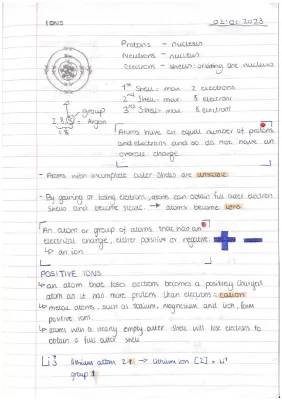 IONS 02.01.2023
Protons - nucleus
Neutrons - nucleus
Electrons - shells orbiting the nucleus
1st Shell - max 2 electrons
2nd Shell - max 8 electron
3rd Shell - max 8 electron
group
2.8.8 Argon
Atoms have an equal number of protons
and electrons and so do not have an
overall charge
- Atoms with incomplete outer shells are unstable
- By gaining or losing electrons, atoms can obtain full outer electron
shells and become stable. → atoms become ions
An atom or group of atoms that has an
electrical charge, either positive or negative.
↳ an ion
+ -
POSITIVE IONS
↳ an atom that loses electrons becomes a positively charged
atom as it has more protons than electrons = cation
↳ metal atoms, such as sodium, magnesium and iron, form
positive ions.
↳ atoms with a nearly empty outer shell will lose electrons to
obtain a full outer shell
Li 3 lithium atom 2.1 → lithium ion [2]+ Li+
group 1